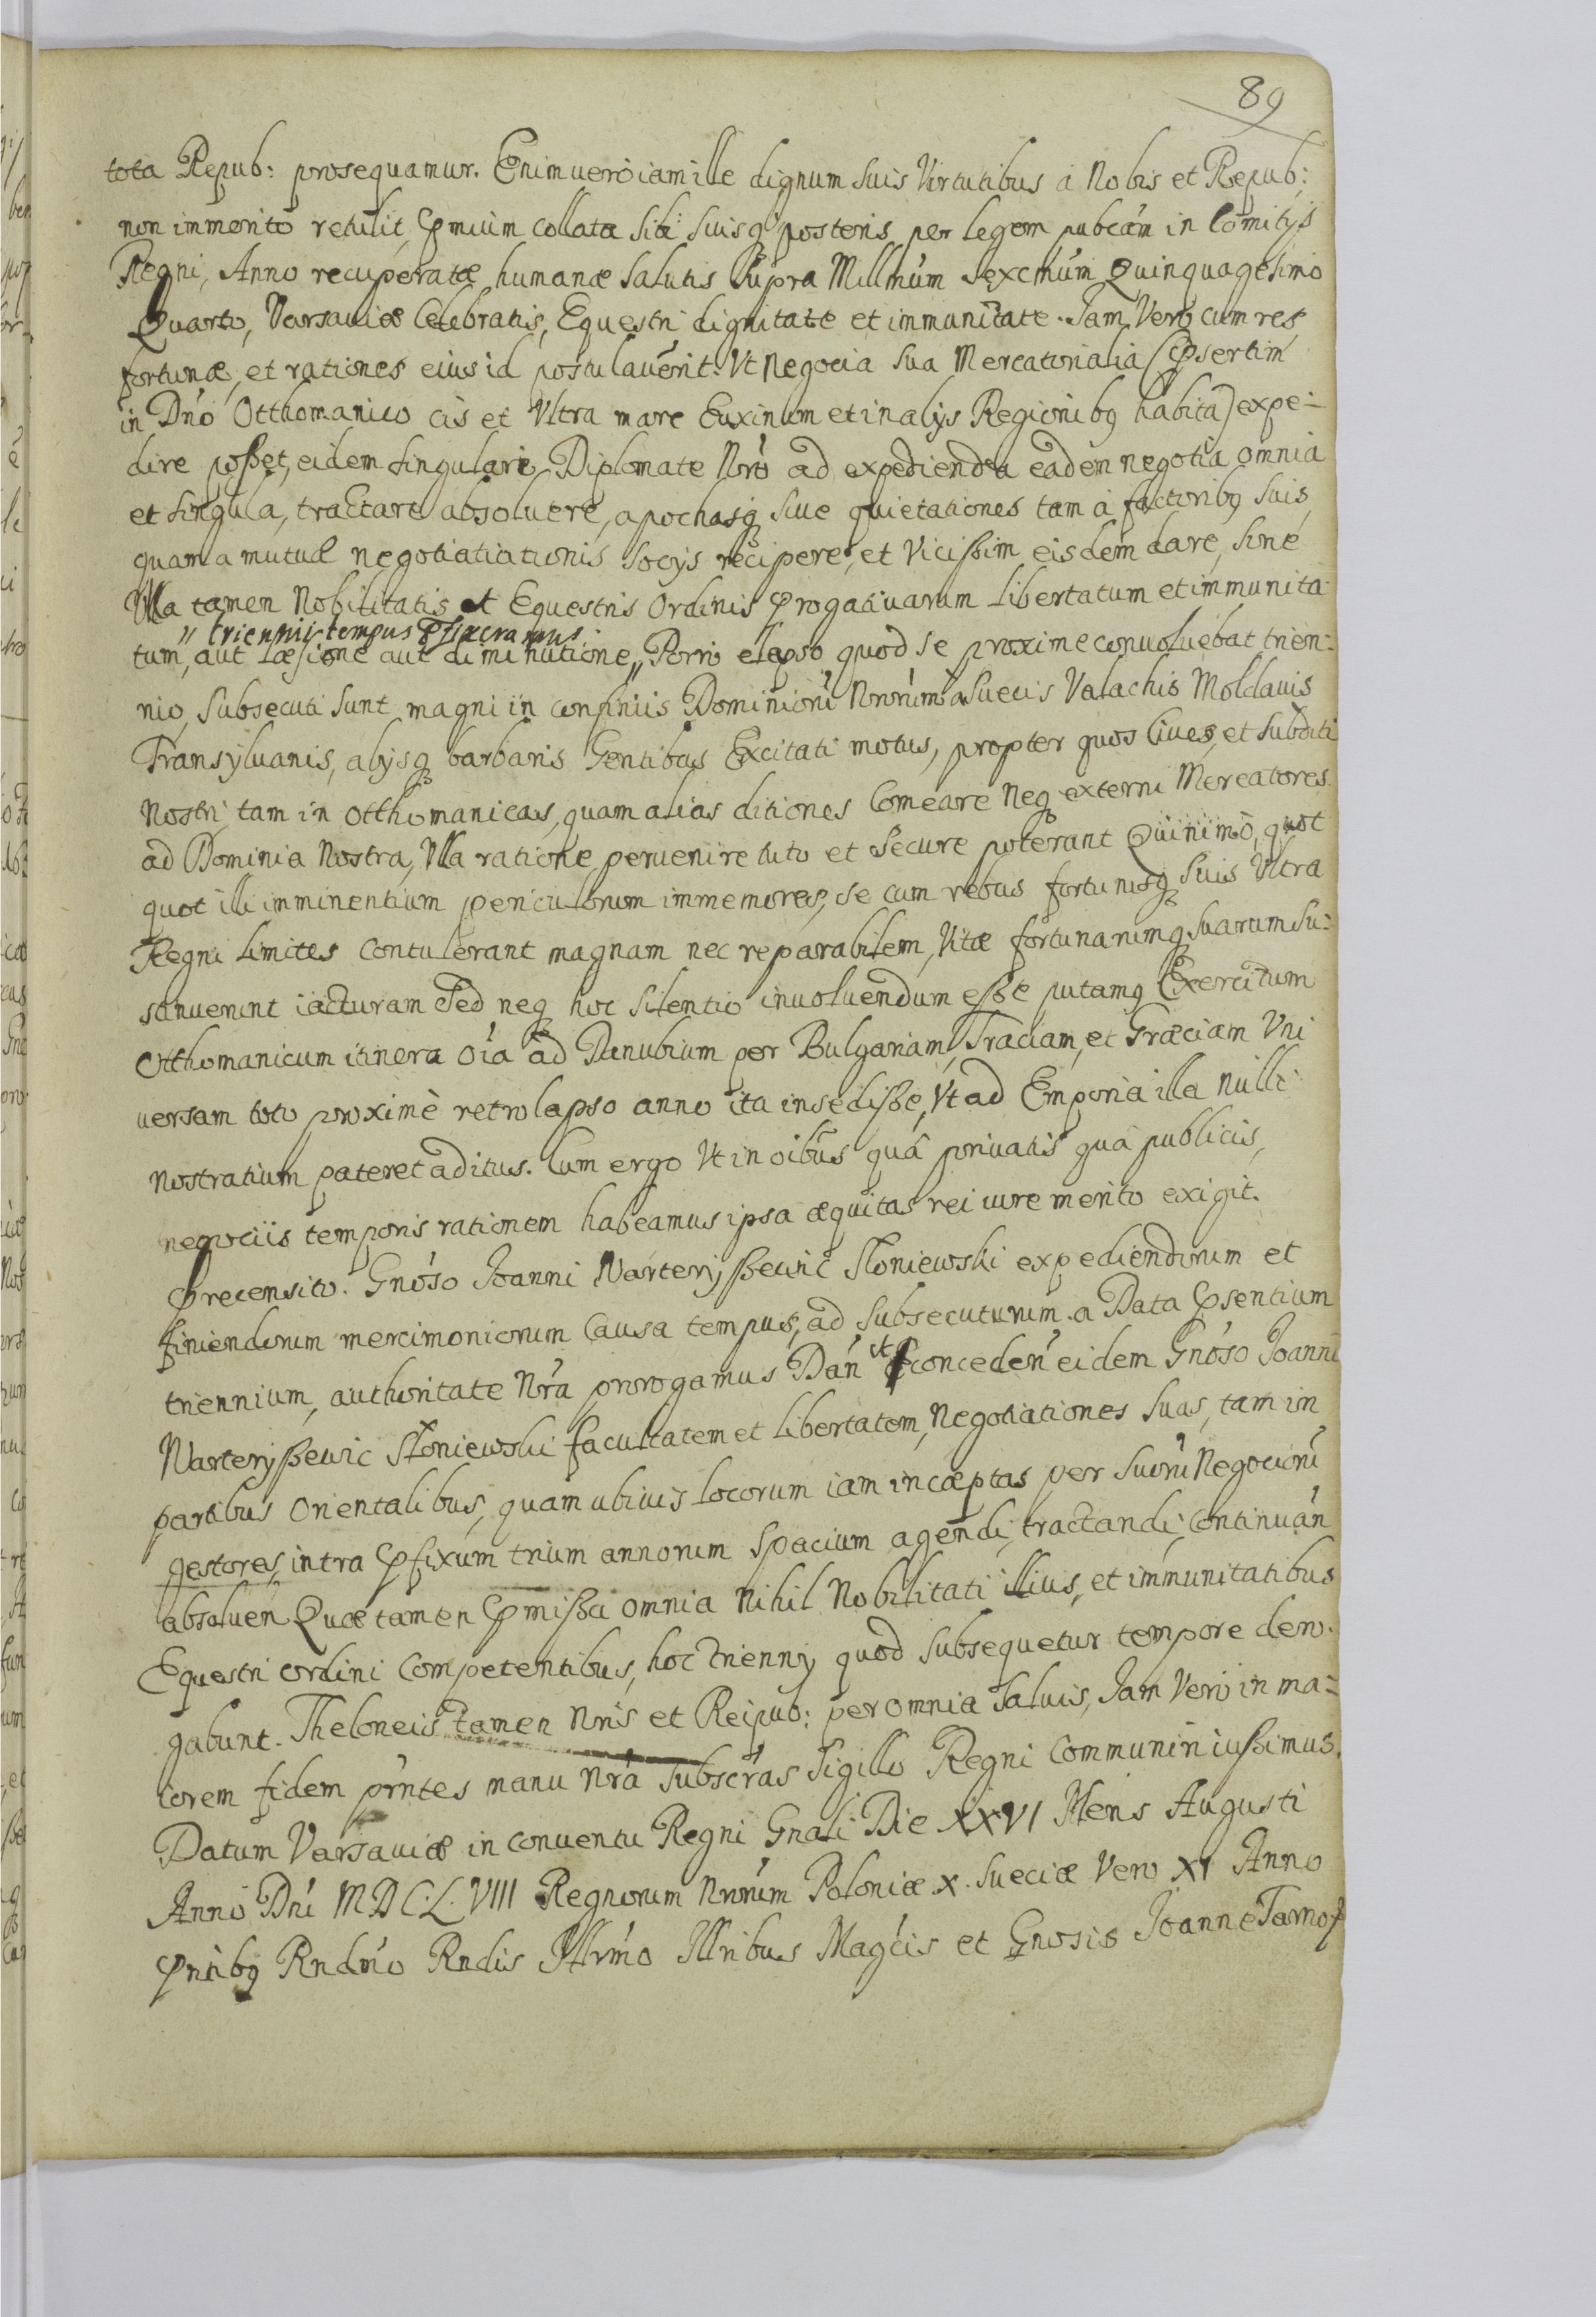 89
tota Repub: prosequamur. Enimuero iam ille dignum suis Virtutibus à Nobis et Repub:
non immerito retulit, pmium collata sibi suisq posteris per legem pubcam in Comitijs
Regni, Anno recuperatæ humanæ Salutis supra Millmum sexcmum Quinquagesimo
Quarto, Varsauiæ Celebratis, Equestri dignitate et immunitate. Iam Vero cum res
fortunæ, et rationes eius id postulauerit. Vt Negocia sua Mercatorialia (psertim
in Dnó Otthomanico cis et Vltra mare Euxinum et in alijs Regionibq habita) expe-
dire posset, eidem singulari Diplomate Nro ad expedienda eadem negotia omnia
et singula, tractare absoluere, apochasq siue quietationes tam à factoribq suis,
quam a mutuæ negotiatiationis socijs recipere, et Vicissim eisdem dare, sine
Vlla tamen Nobilitatis et Equestris Ordinis progatiuarum libertatum et immunita-
" triennii tempus pfixeramus
tum, aut læsione aut diminutione „ Porro elapso quod se proxime conuoluebat trien:
nio, subsecuti sunt magni in confiniis Dominiorú Nrorúm a Suecis Valachis Moldauis
Transyluanis, alijsq barbaris Gentibus Excitati motus, propter quos Ciues, et subditi
Nostri tam in Otthomanicas, quam alias ditiones Comeare Neq externi Mercatores
ad Dominia Nostra, Vlla ratione peruenire tuto et Secure poterant Quinimò, quot
quot illi imminentium periculorum immemores, se cum rebus fortunisq suis Vltra
Regni limites contulerant magnam nec reparabilem, Vitæ fortunarumq suarum su:
stinuerunt iacturam Sed neq hoc silentio inuoluendum esse putamq Exercitum
Otthomanicum itinera oia ad Danubium per Bulgariam, Traciam, et Græciam Vni
uersam toto proximè retrolapso anno ita insedisse, Vt ad Emporia illa nulli
nostratium pateret aditus. Cum ergo Vt in oibus quâ priuatis quâ publicis,
negociis temporis rationem habeamus ipsa æquitas rei iure merito exigit.
precensito. Gnóso Ioanni Warteryssewic Słoniewski expediendorum et
finiendorum mercimoniorum Causa tempus, ad subsecuturum a Data psentium
triennium, authoritate Nrá prorogamus Dán et conceden eidem Gnóso Ioanni
Warteryssewic Słoniewski facultatem et libertatem, Negotiationes suas, tam in
partibus Orientalibus, quam ubiuis locorum iam incæptas per suorú Negociorú
gestores, intra pfixum trium annorum spacium agendi, tractandi, Continuán
absoluen Quæ tamen pmissa omnia Nihil Nobilitati illius, et immunitatibus
Equestri ordini Competentibus, hoc trienny quod subsequetur tempore dero-
gabunt. Theloneis tamen Nris et Reipub: per omnia saluis, Iam Vero in ma=
iorem fidem prntes manu Nrá Subscras Sigillo Regni Communiri iussimus.
Datum Varsauiæ in conuentu Regni Gnali Die XXVI Mens Augusti
Anno Dni MDC.L.VIII Regnorum Nrorúm Poloniæ X. Sueciæ Vero XI Anno
pntibq Rndmo Rndis Illrmo Illribus Magcis et Gnosis Ioanne Tarnos